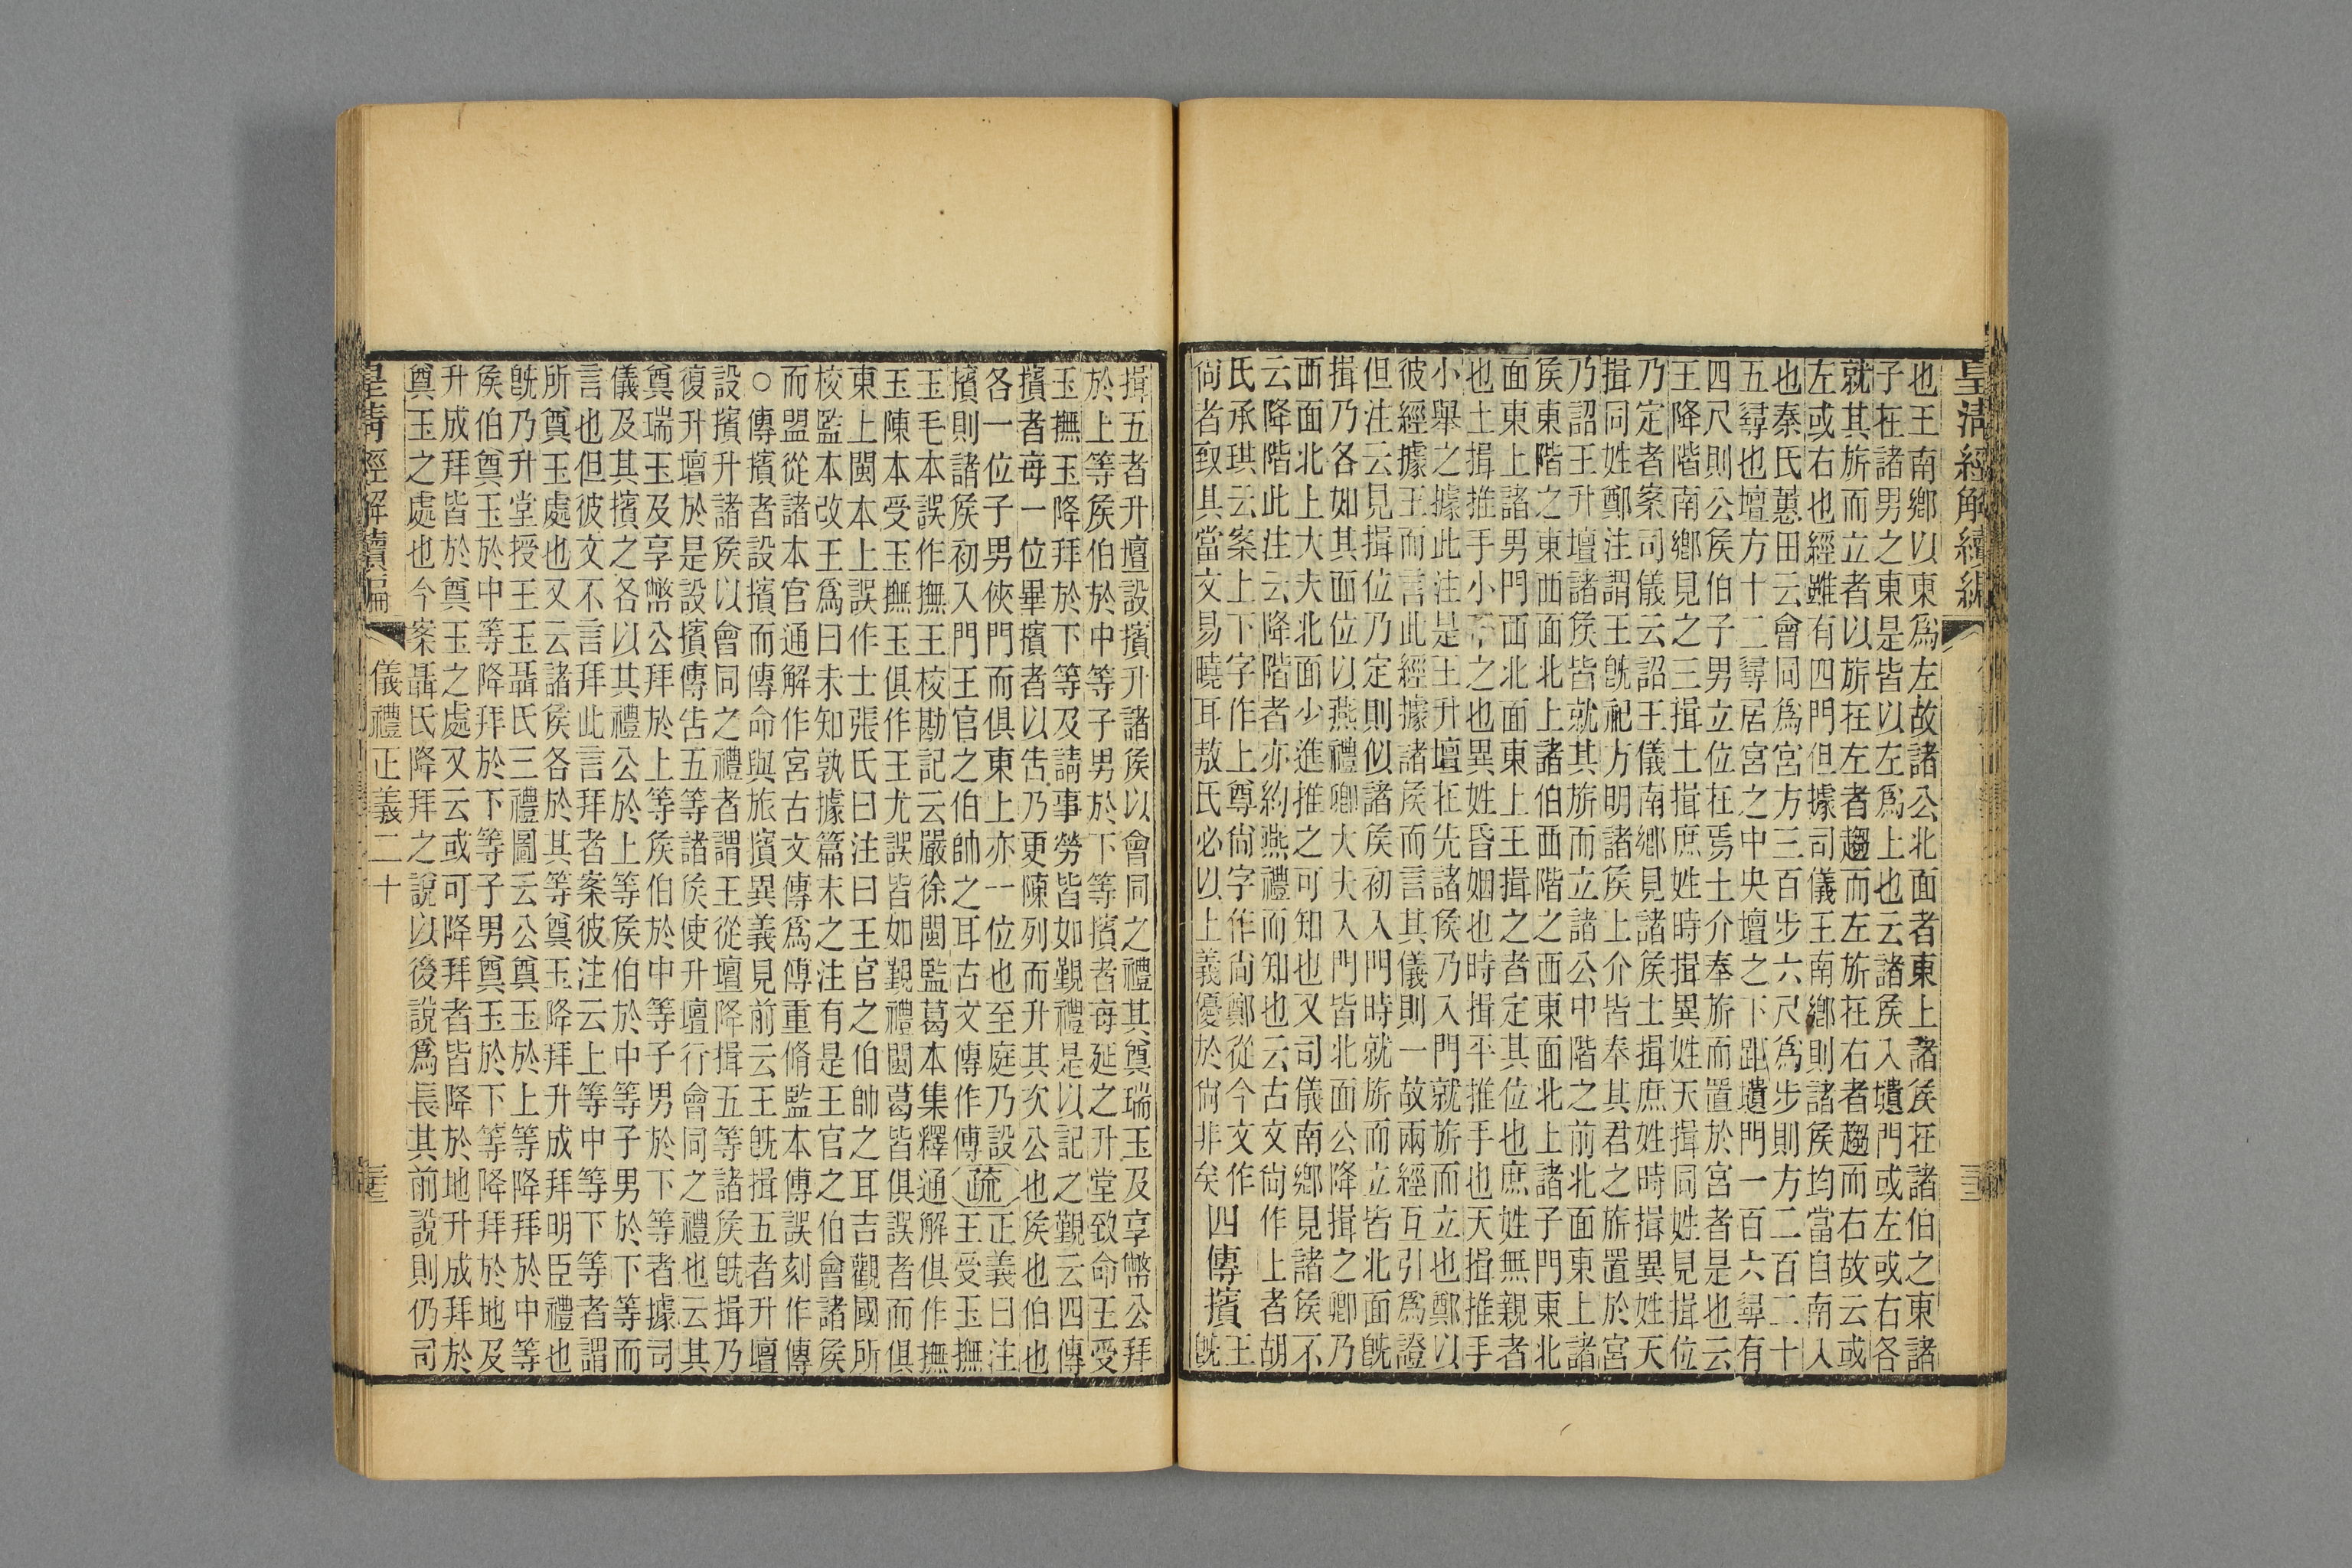 皇清經解續編
也王南鄉以東爲左故諸公北面者東上諸侯在諸伯之東諸
子在諸男之東是皆以左爲上也云諸侯入壝門或左或右各
就其旂而立者以旂在左者趨而左旂在右者趨而右故云或
左或右也經雖有四門但據司儀王南鄉則諸侯均當自南入
也秦氏蕙田云會同爲宮方三百步六尺爲步則方二百二十
五尋也壇方十二尋居宮之中央壇之下距壝門一百六尋有
四尺則公侯伯子男立位在焉士介奉旂而置於宮者是也云
王降階南鄉見之三揖土揖庶姓時揖異姓天揖同姓見揖位
乃定者案司儀云詔王儀南鄉見諸侯土揖庶姓時揖異姓天
揖同姓鄭注謂王既祀方明諸侯上介皆奉其君之旂置於宮
乃詔王升壇諸侯皆就其旂而立諸公中階之前北面東上諸
侯東階之東西面北上諸伯西階之西東面北上諸子門東北
面東上諸男門西北面東上王揖之者定其位也庶姓無親者
也土揖推手小下之也異姓昏姻也時揖平推手也天揖推手
小舉之據此注是王升壇在先諸侯乃入門就旂而立也鄭以
彼經據王而言此經據諸侯而言其儀則一故兩經互引爲證
但注云見揖位乃定則似諸侯初入門時就旂而立皆北面既
揖乃各如其面位以燕禮卿大夫入門皆北面公降揖之卿乃
西面北上大夫北面少進推之可知也又司儀南鄉見諸侯不
云降階此注云降階者亦約燕禮而知也云古文尙作上者胡
氏承珙云案上下字作上尊尙字作尙鄭從今文作
尙者㪅其當文易曉耳敖氏必以上義優於尙非矣四傳擯王既
揖五者升壇設擯升諸侯以會同之禮其奠瑞玉及享幣公拜
於上等侯伯於中等子男於下等擯者每延之升堂致命王受
玉撫玉降拜於下等及請事勞皆如覲禮是以記之覲云四傳
擯者每一位畢擯者以吿乃更陳列而升其次公也侯也伯也
各一位子男俠門而俱東上亦一位也至庭乃設
擯則諸侯初入門王官之伯帥之耳古文傳作傅疏正義曰注王受玉撫
玉毛本誤作撫王校勘記云嚴徐閩監葛本集釋通解俱作撫
玉陳本受玉撫玉俱作王尤誤皆如覲禮閩葛皆俱誤者而俱
東上閩本上誤作士張氏曰注曰王官之伯帥之耳吉觀國所
校監本改王爲曰未知孰據篇末之注有是王官之伯會諸侯
而盟從諸本官通解作宮古文傳爲傅重脩監本傅誤刻作傳
○傳擯者設擯而傳命與旅擯異義見前云王既揖五者升壇
設擯升諸侯以會同之禮者謂王從壇降揖五等諸侯既揖乃
復升壇於是設擯傳吿五等諸侯使升壇行會同之禮也云其
奠瑞玉及享幣公拜於上等侯伯於中等子男於下等者據司
儀及其擯之各以其禮公於上等侯伯於中等子男於下等而
言也但彼文不言拜此言拜者案彼注云上等中等下等者謂
所奠玉處也又云諸侯各於其等奠玉降拜升成拜明臣禮也
既乃升堂授王玉聶氏三禮圖云公奠玉於上等降拜於中等
侯伯奠玉於中等降拜於下等子男奠玉於下等降拜於地及
升成拜皆於奠玉之處又云或可降拜者皆降於地升成拜於
奠玉之處也今案聶氏降拜之說以後說爲長其前說則仍司
皇淸經解續編
儀禮正義二十